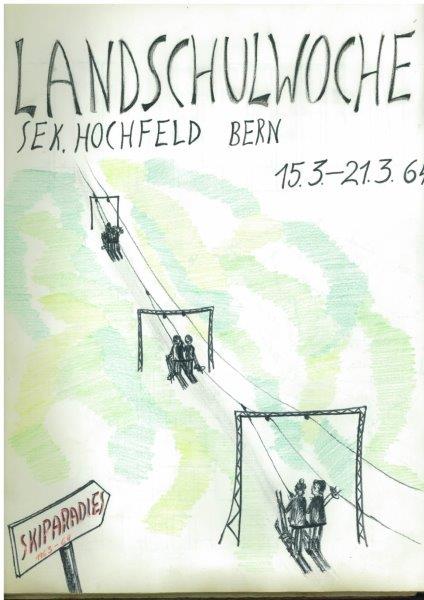 LANDSCHULWOCHE
SEK. HOCHFELD BERN
15.3.–21.3.64
SKIPARADIES
1963–64